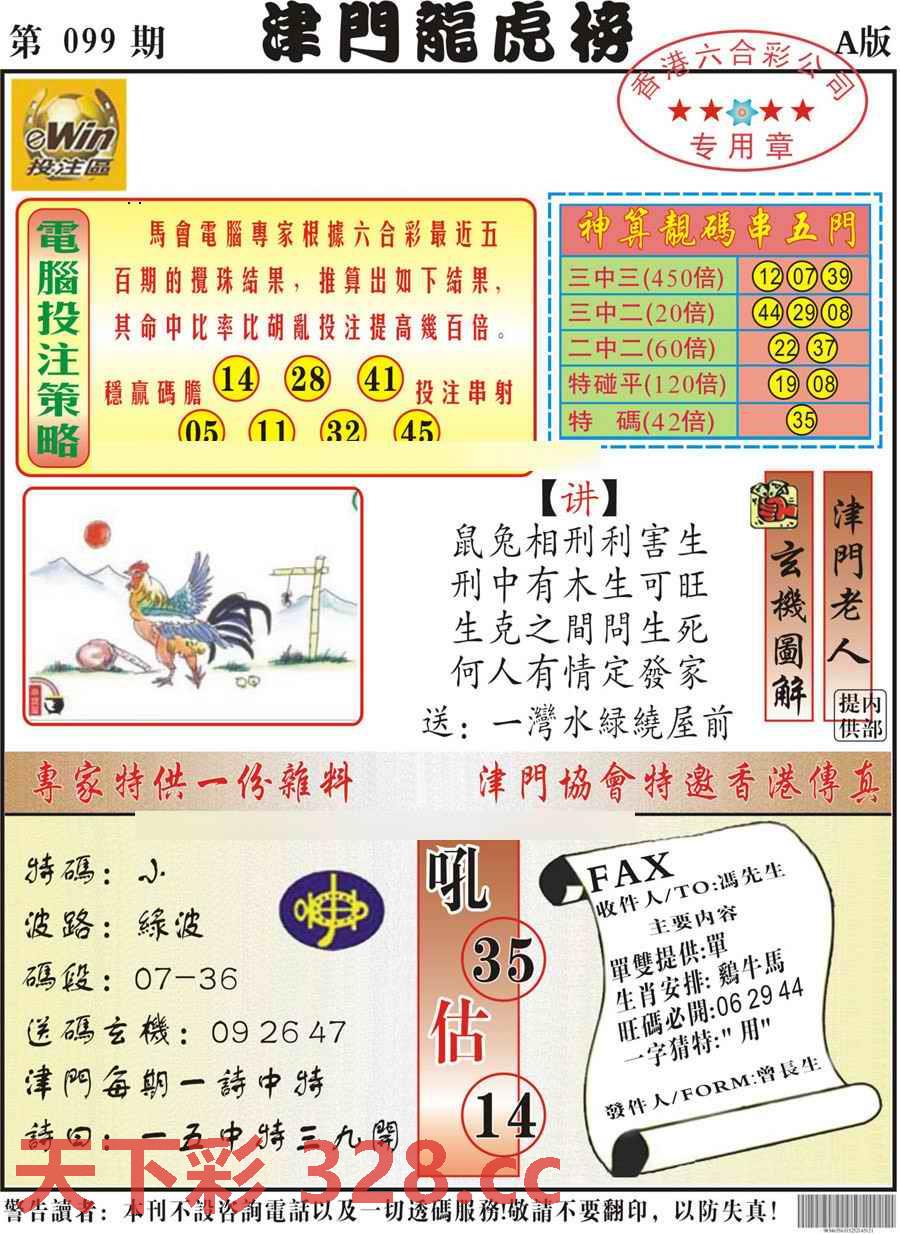 第 099 期
津門龍虎榜
A版
香港六合彩公司
专用章
eWin
投注區
電腦投注策略
馬會電腦專家根據六合彩最近五
百期的攪珠結果，推算出如下結果，
其命中比率比胡亂投注提高幾百倍。
穩贏碼膽 14 28 41 投注串射
05 11 32 45
神算靚碼串五門
三中三(450倍) 12 07 39
三中二(20倍) 44 29 08
二中二(60倍) 22 37
特碰平(120倍) 19 08
特 碼(42倍) 35
【讲】
鼠兔相刑利害生
刑中有木生可旺
生克之間問生死
何人有情定發家
送：一灣水緑繞屋前
玄機圖解
津門老人
内部提供
專家特供一份雜料
津門協會特邀香港傳真
特碼：小
波路：綠波
碼段：07-36
送碼玄機：09 26 47
津門每期一詩中特
詩曰：一五中特三九開
吼
35
估
14
FAX
收件人/TO:馮先生
主要内容
單雙提供:單
生肖安排:鷄牛馬
旺碼必開:06 29 44
一字猜特:"用"
發件人/FORM:曾長生
天下彩 328.cc
警告讀者：本刊不設咨詢電話以及一切透碼服務!敬請不要翻印，以防失真！